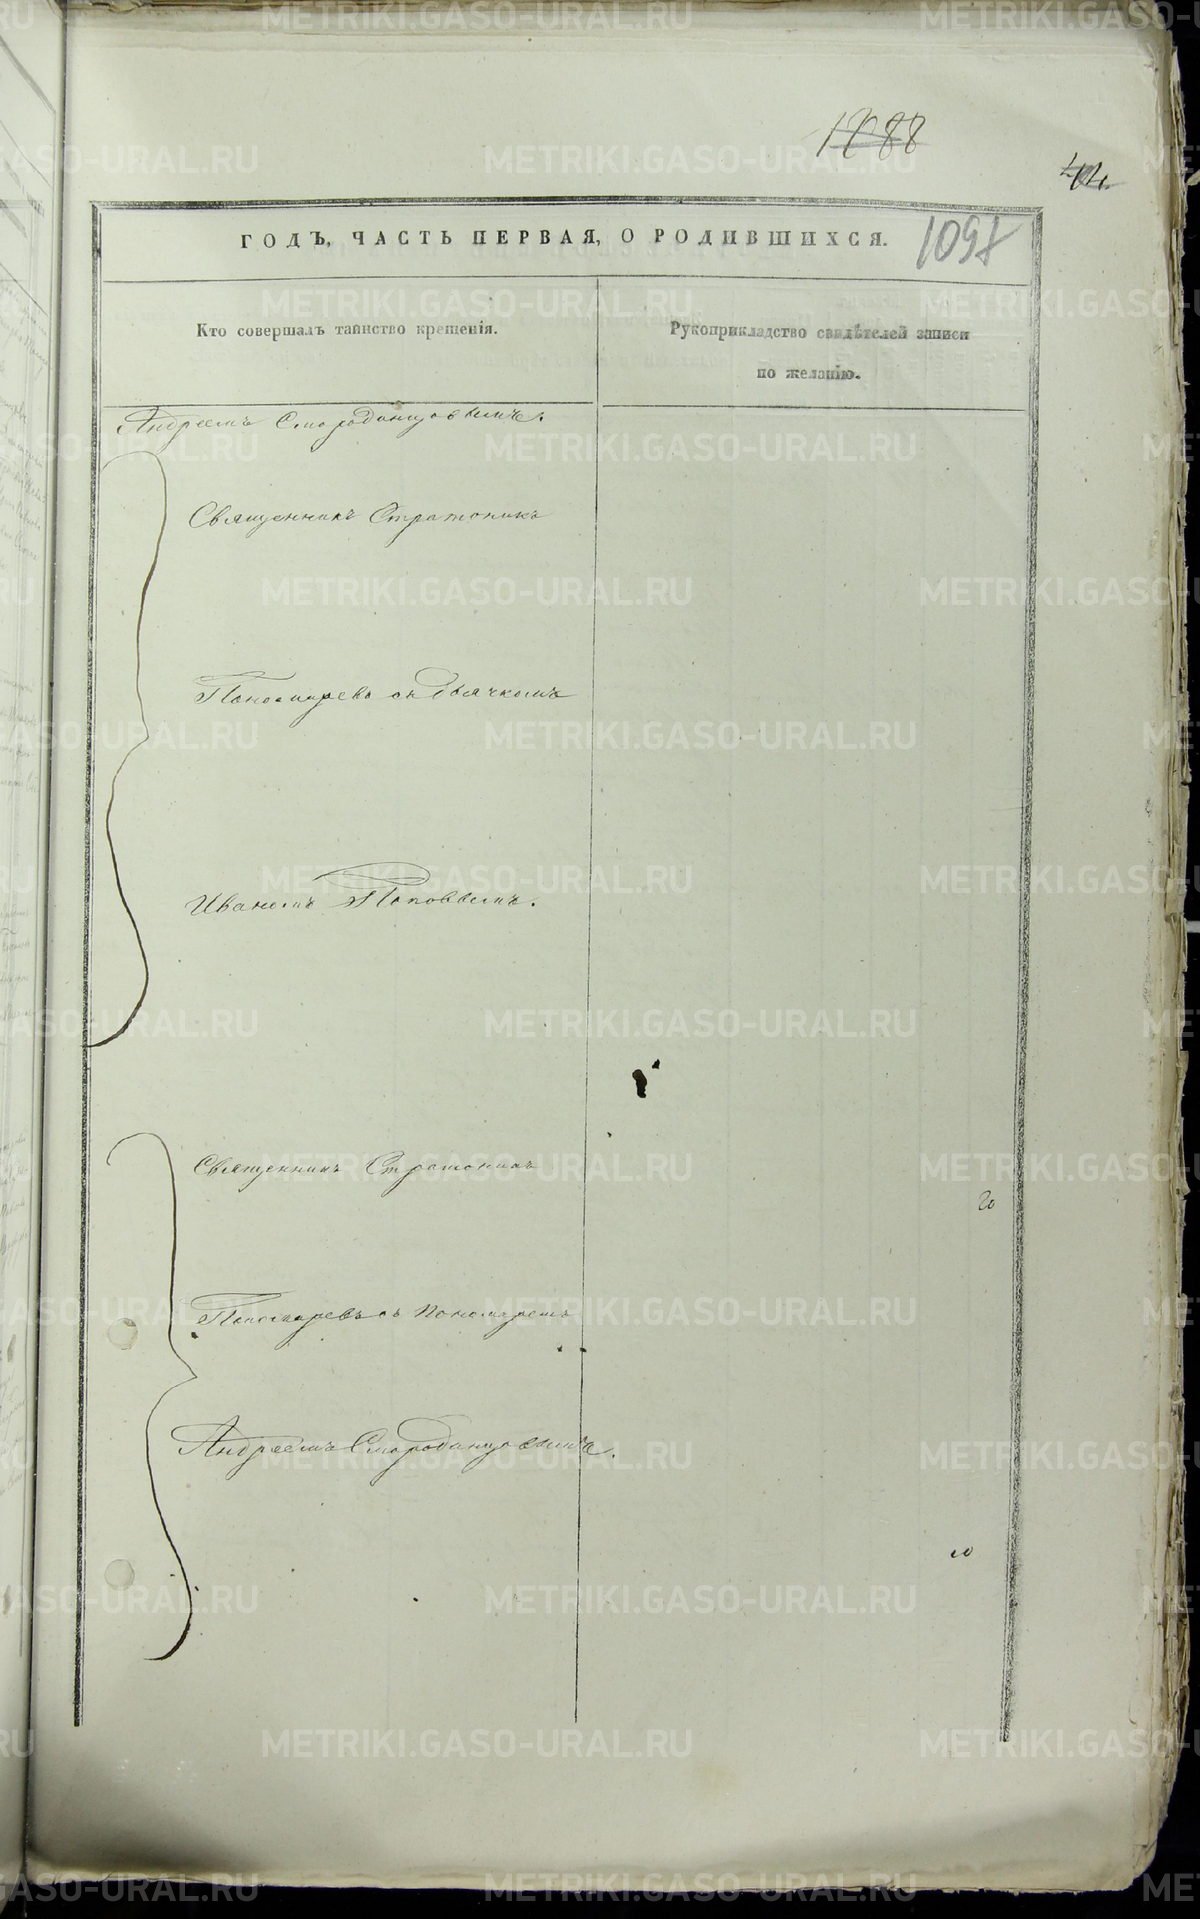 1088
42.
ГОДЪ, ЧАСТЬ ПЕРВАЯ, О РОДИВШИХСЯ.
1097
Кто совершалъ таинство крещенія.
Рукоприкладство свидѣтелей записи
по желанію.
Андреемъ Смородинцовымъ.
Священникъ Стратоникъ
Пономаревъ съ дьячкомъ
Иваномъ Поповымъ.
Священникъ Стратоникъ
Пономаревъ съ пономаремъ
Андреемъ Смородинцовымъ.
METRIKI.GASO-URAL.RU